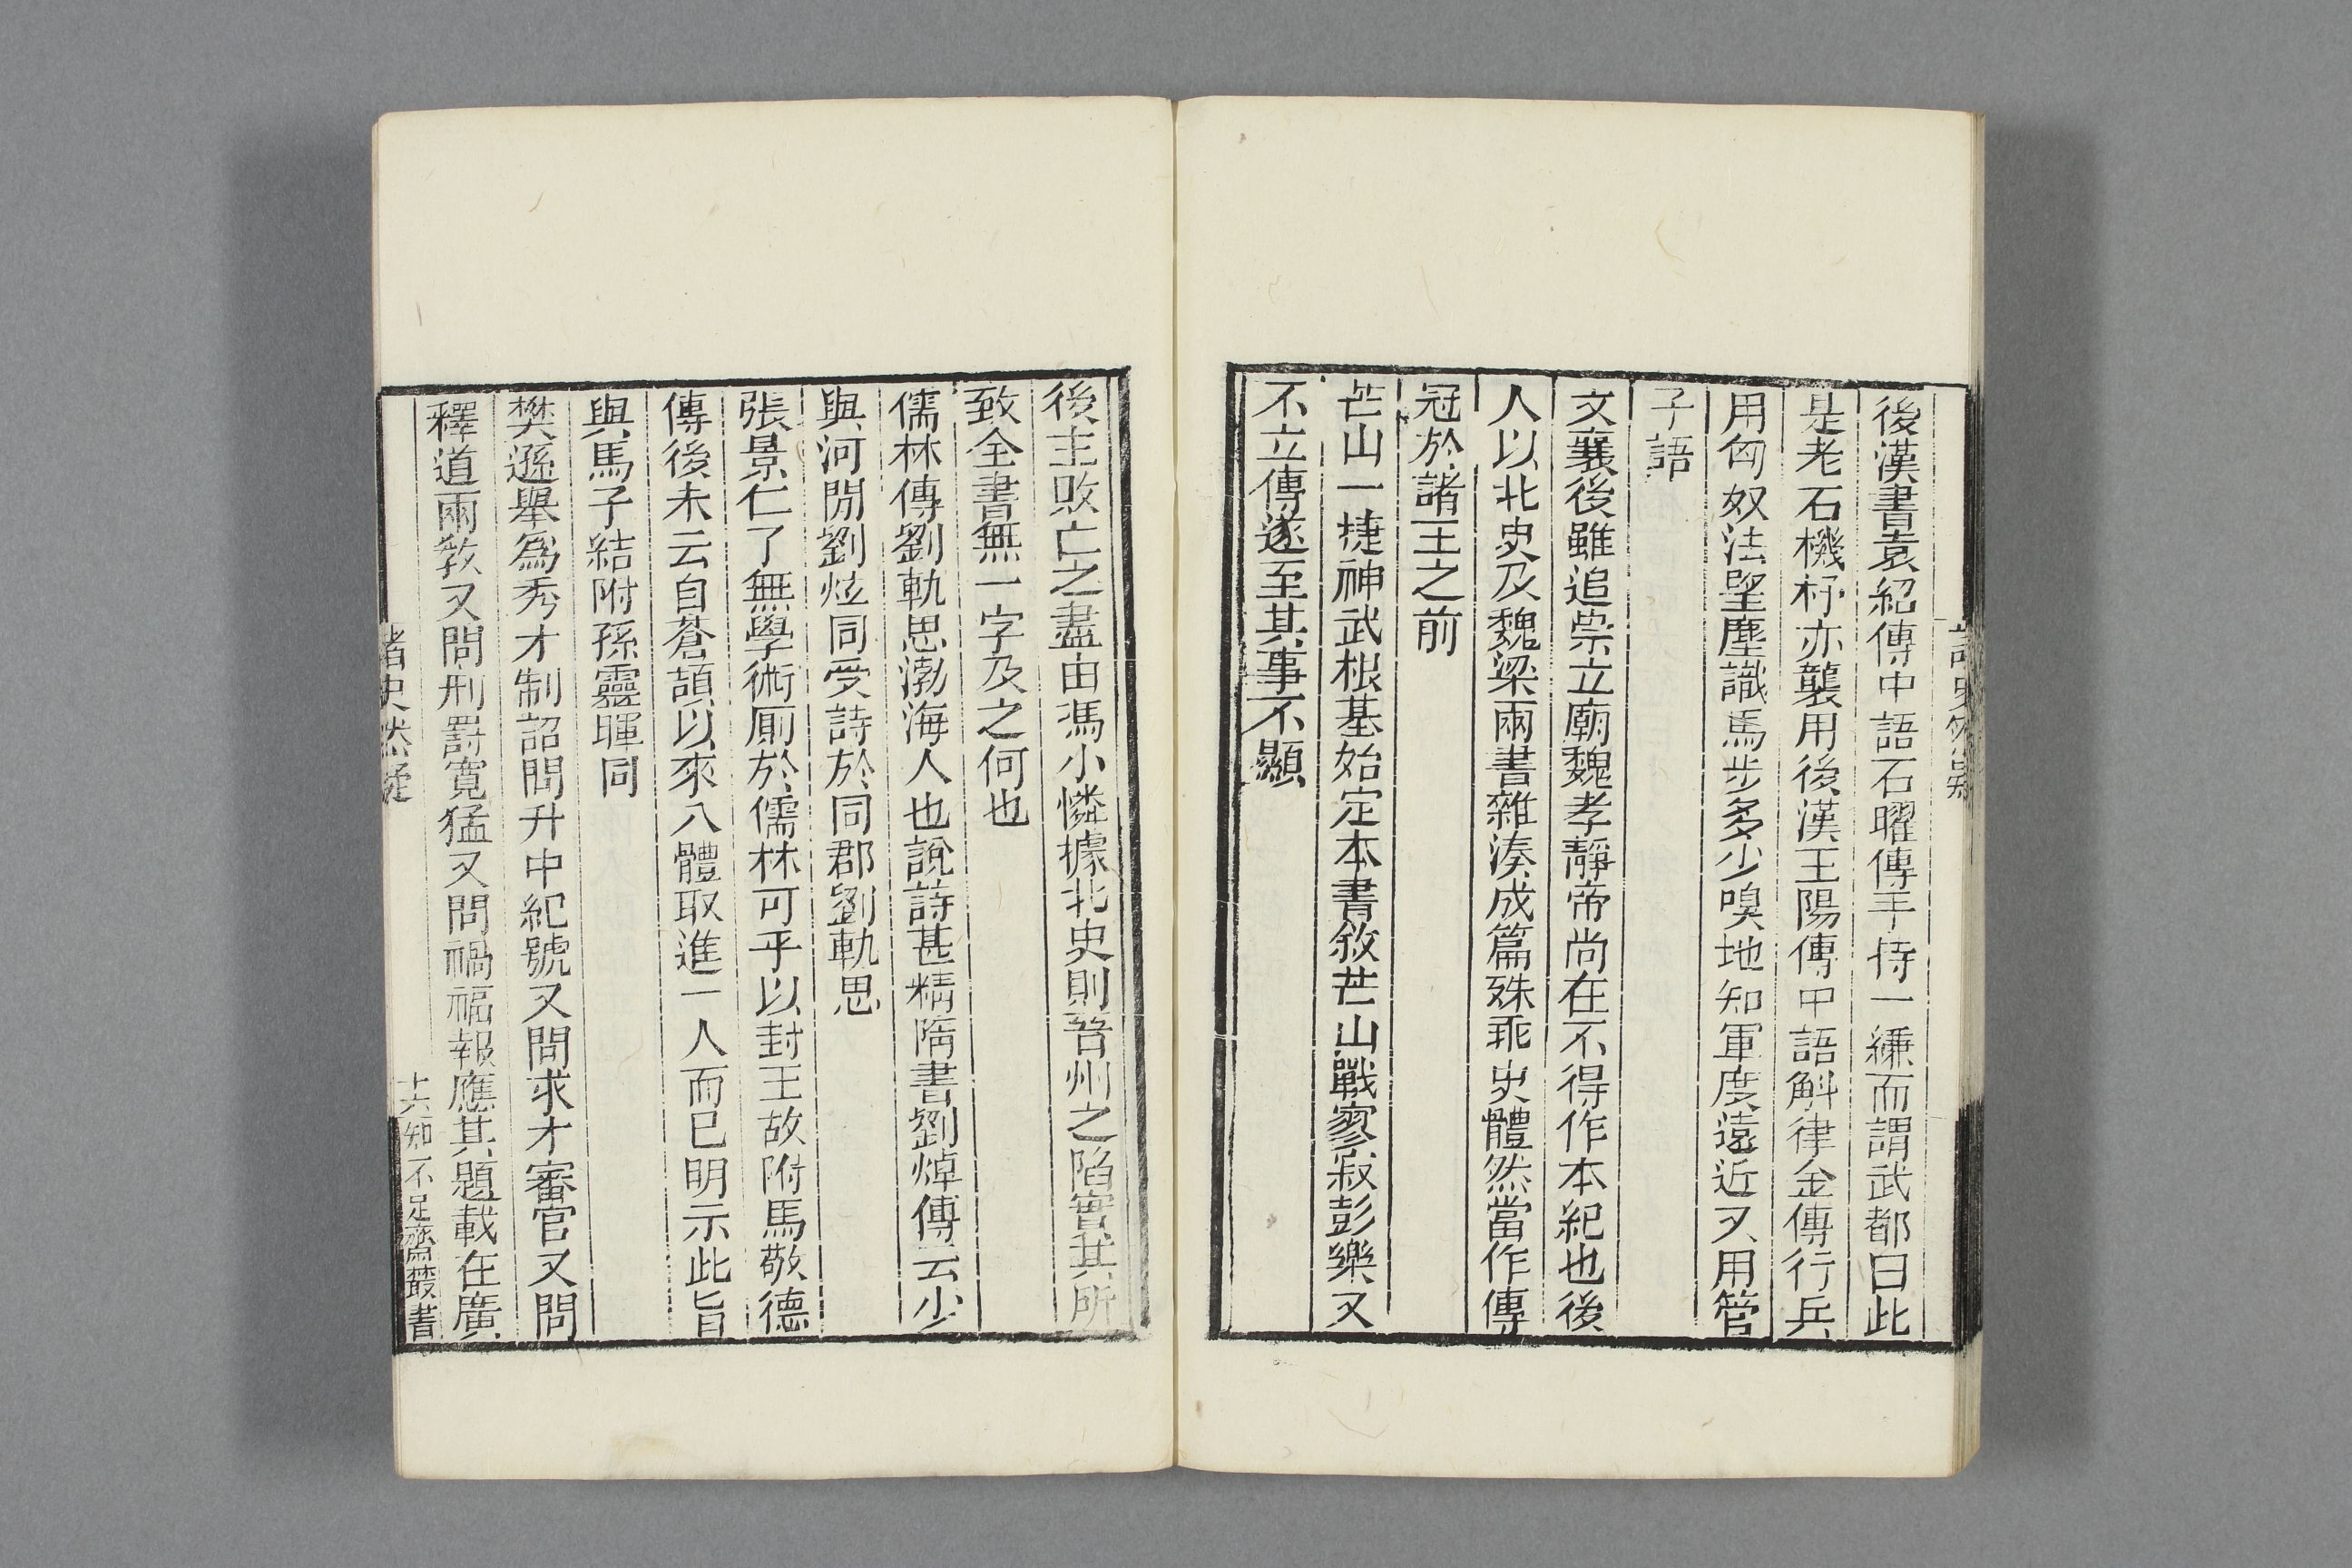 後漢書袁紹傳中語石曜傳手持一縑而謂武都曰此
是老石機杼亦襲用後漢王陽傳中語斛律金傳行兵
用匈奴法望塵識馬步多少嗅地知軍度遠近又用管
子語
文襄後雖追崇立廟魏孝靜帝尚在不得作本紀也後
人以北史及魏梁兩書雜湊成篇殊乖史體然當作傳
冠於諸王之前
芒山一捷神武根基始定本書敘芒山戰寥寂彭樂又
不立傳遂至其事不顯
後主敗亡之盡由馮小憐據北史則晉州之陷實其所
致全書無一字及之何也
儒林傳劉軌思渤海人也說詩甚精隋書劉焯傳云少
與河閒劉炫同受詩於同郡劉軌思
張景仁了無學術廁於儒林可乎以封王故附馬敬德
傳後末云自蒼頡以來八體取進一人而已明示此旨
與馬子結附孫靈暉同
樊遜舉爲秀才制詔問升中紀號又問求才審官又問
釋道兩敎又問刑罰寬猛又問禍福報應其題載在廣
諸史然疑
十六知不足齋叢書